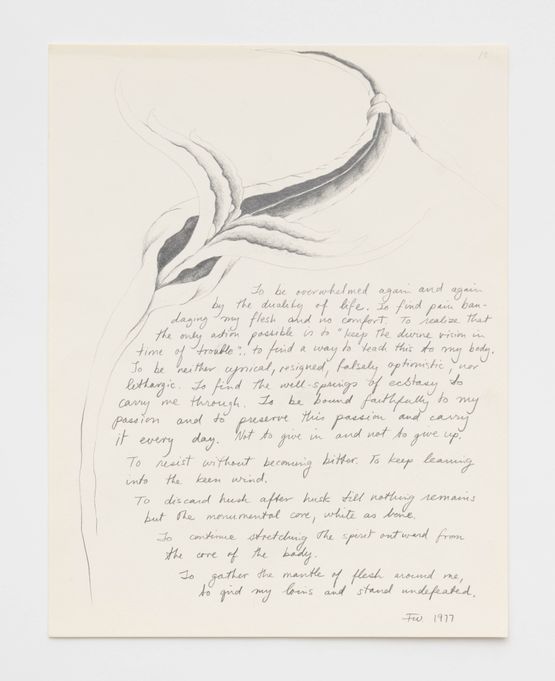 To be overwhelmed again and again
by the duality of life. To find pain ban-
daging my flesh and no comfort. To realize that
the only action possible is to "keep the divine vision in
time of trouble".. to find a way to teach this to my body.
To be neither cynical, resigned, falsely optimistic, nor
lethargic. To find the well-springs of ecstasy to
carry me through. To be bound faithfully to my
passion and to preserve this passion and carry
it every day. Not to give in and not to give up.
To resist without becoming bitter. To keep leaning
into the keen wind.
To discard husk after husk till nothing remains
but the monumental core, white as bone.
To continue stretching the spirit outward from
the core of the body.
To gather the mantle of flesh around me,
to gird my loins and stand undefeated.
FW 1977